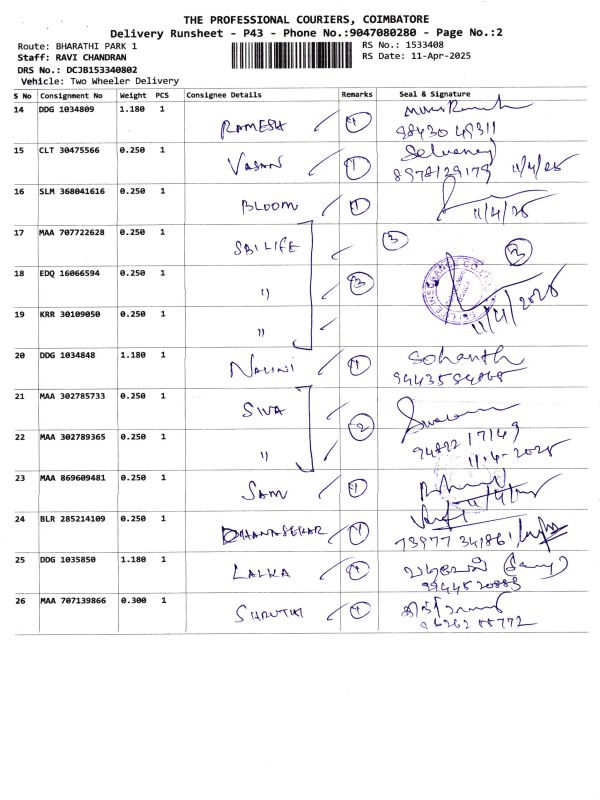 THE PROFESSIONAL COURIERS, COIMBATORE
Delivery Runsheet - P43 - Phone No.:9047080280 - Page No.:2
Route: BHARATHI PARK 1 RS No.: 1533408
Staff: RAVI CHANDRAN RS Date: 11-Apr-2025
DRS No.: DCJB153340802
Vehicle: Two Wheeler Delivery
S No Consignment No Weight PCS Consignee Details Remarks Seal & Signature
14 DDG 1034809 1.180 1 RAMESH 1
98430 49311
15 CLT 30475566 0.250 1 VASAN 1
8978129179 11/4/25
16 SLM 368041616 0.250 1 BLOOM 1 11/4/25
17 MAA 707722628 0.250 1 SBI LIFE 3 3
18 EDQ 16066594 0.250 1 " 3 11/4/2025
19 KRR 30109050 0.250 1 "
20 DDG 1034848 1.180 1 NALINI 1
21 MAA 302785733 0.250 1 SIVA 2
22 MAA 302789365 0.250 1 "
11.4.2025
23 MAA 869609481 0.250 1 SAM 1
24 BLR 285214109 0.250 1 DHANASEKAR 1
73977 34861
25 DDG 1035850 1.180 1 LALKA 1
99445 20883
26 MAA 707139866 0.300 1 SHRUTHI 1